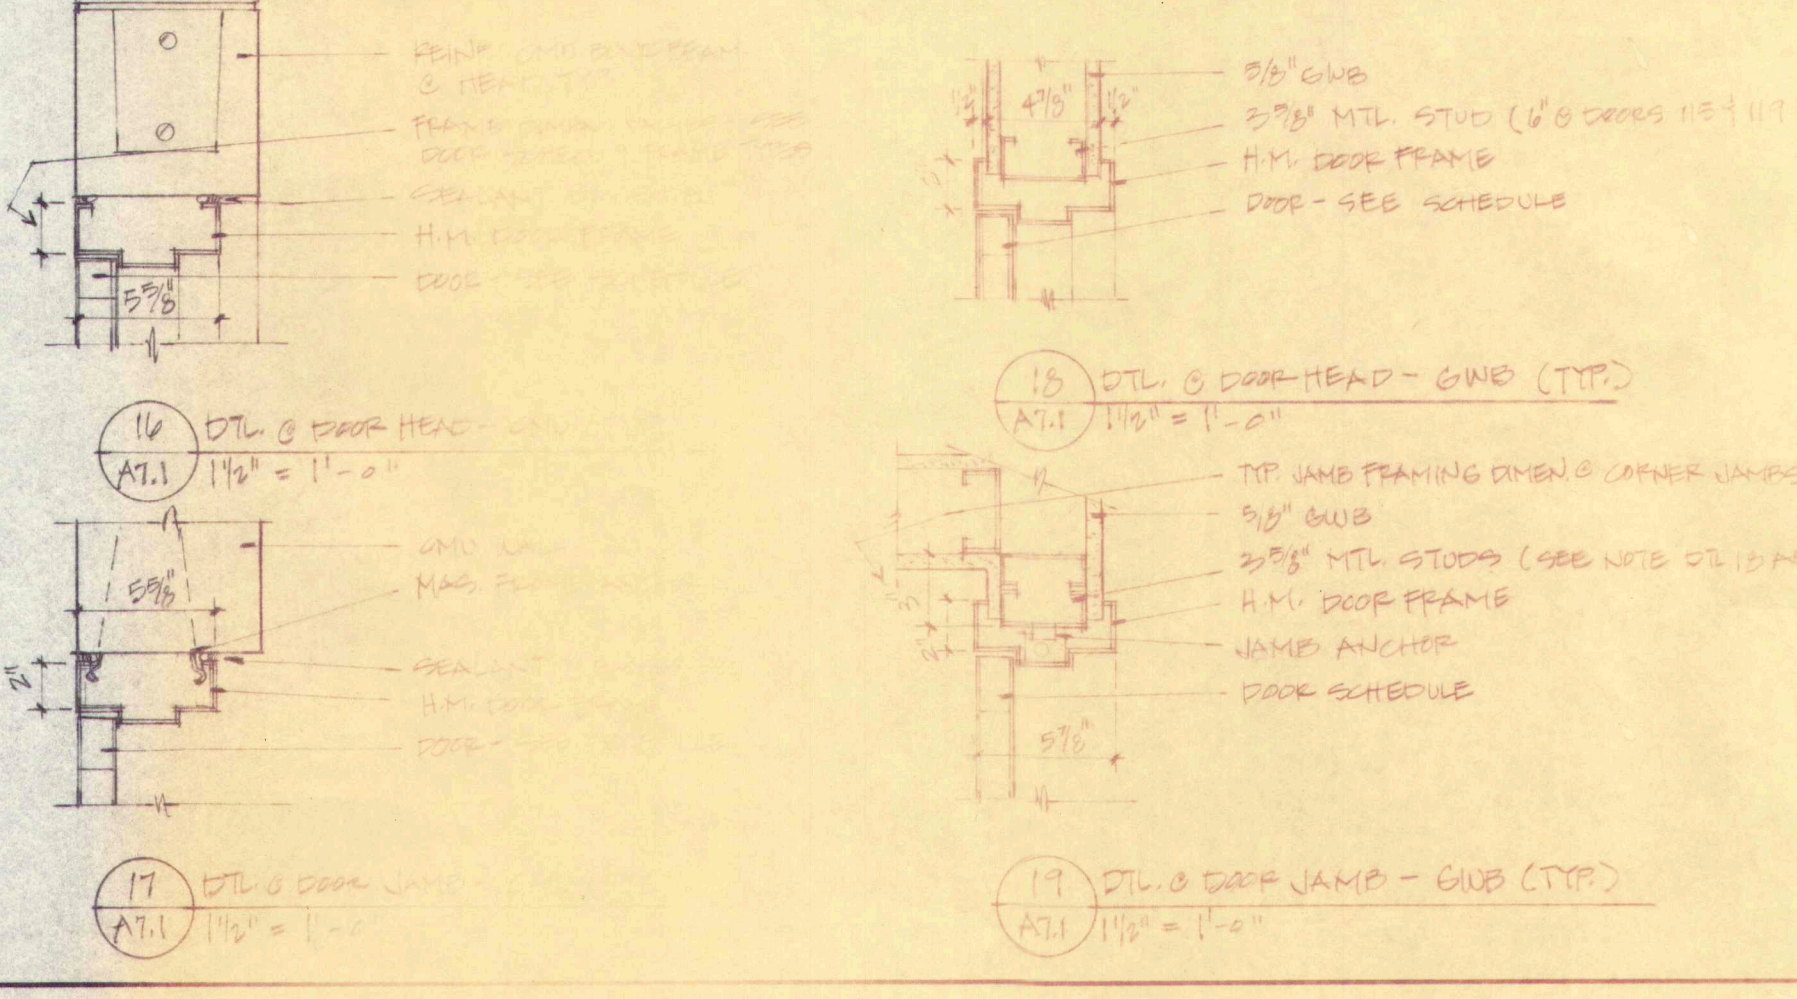 REINF. CMU BOND BEAM
@ HEAD
FRAME DIMEN SEE
DOOR & FRAME TYPES
SEALANT
H.M. DOOR FRAME
DOOR - SEE SCHEDULE
5 5/8"
16 DTL. @ DOOR HEAD - CMU
A7.1 1 1/2" = 1'-0"
CMU WALL
5 5/8"
MAS.
SEALANT
2"
H.M. DOOR FRAME
DOOR - SEE SCHEDULE
17 DTL. @ DOOR JAMB -
A7.1 1 1/2" = 1'-0"
5/8" GWB
1/2" 4 7/8" 1/2"
3 5/8" MTL. STUD (6" @ DOORS 115 & 119
H.M. DOOR FRAME
2"
DOOR - SEE SCHEDULE
18 DTL. @ DOOR HEAD - GWB (TYP.)
A7.1 1 1/2" = 1'-0"
TYP. JAMB FRAMING DIMEN. @ CORNER JAMBS
5/8" GWB
3 5/8" MTL. STUDS (SEE NOTE DTL 18
3"
H.M. DOOR FRAME
2"
JAMB ANCHOR
DOOR SCHEDULE
5 7/8"
19 DTL. @ DOOR JAMB - GWB (TYP.)
A7.1 1 1/2" = 1'-0"